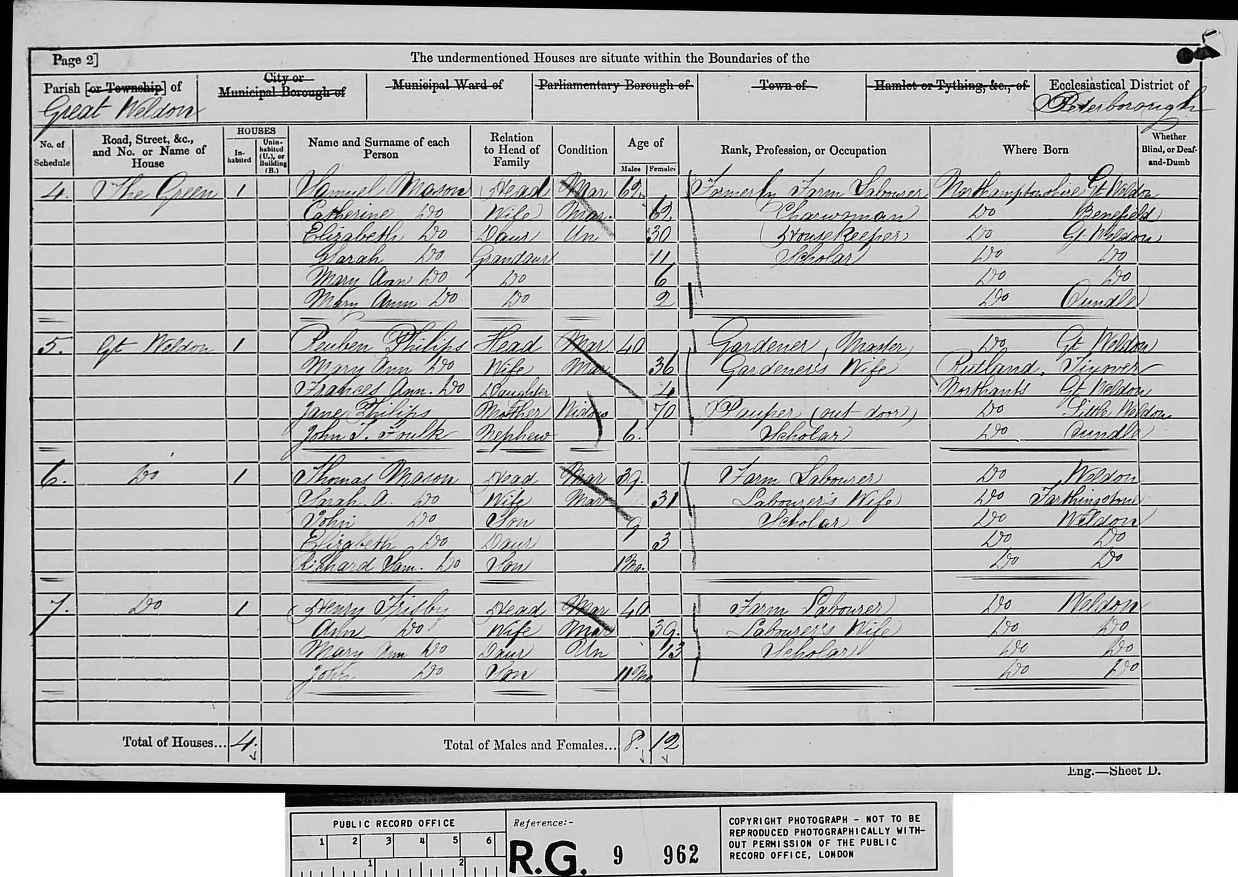 5
Page 2]
The undermentioned Houses are situate within the Boundaries of the
Parish [or Township] of
Great Weldon
City or
Municipal Borough of
Municipal Ward of
Parliamentary Borough of
Town of
Hamlet or Tything, &c., of
Ecclesiastical District of
Peterborough
No. of Schedule
Road, Street, &c., and No. or Name of House
HOUSES
In-habited
Unin-habited (U.), or Building (B.)
Name and Surname of each Person
Relation to Head of Family
Condition
Age of
Males
Females
Rank, Profession, or Occupation
Where Born
Whether Blind, or Deaf-and-Dumb
4. The Green 1 Samuel Mason Head Mar 62 Formerly Farm Labourer Northamptonshire Gt Weldon
Catherine Do Wife Mar. 62 Charwoman Do Benefield
Elizabeth Do Daur Un 30 Housekeeper Do Gt Weldon
Sarah Do Grandaur 11 Scholar Do Do
Mary Ann Do Do 6 Do Do
Mary Ann Do Do 2 Do Oundle
5. Gt Weldon 1 Reuben Philips Head Mar 40 Gardener, Master Do Gt Weldon
Mary Ann Do Wife Mar 36 Gardener's Wife Rutland, Tixover
Frances Ann. Do Daughter 4 Northants Gt Weldon
Jane Philips Mother Widow 70 Pauper (out door) Do Little Weldon
John T. Foulk Nephew 6. Scholar Do Oundle
6. Do 1 Thomas Mason Head Mar 39. Farm Labourer Do Weldon
Sarah A. Do Wife Mar 31 Labourer's Wife Do Farthingstone
John Do Son 9 Scholar Do Weldon
Elizabeth Do Daur 3 Do Do
Richard Sam. Do Son 1 Mo. Do Do
7. Do 1 Henry Frisby Head Mar 40 Farm Labourer Do Weldon
Ann Do Wife Mar 39. Labourer's Wife Do Do
Mary Ann Do Daur Un 13 Scholar Do Do
John Do Son 11 Mo Do Do
Total of Houses... 4.
Total of Males and Females... 8. 12
Eng.—Sheet D.
PUBLIC RECORD OFFICE
1 2 3 4 5 6
1 2
Reference:-
R.G. 9 962
COPYRIGHT PHOTOGRAPH - NOT TO BE
REPRODUCED PHOTOGRAPHICALLY WITH-
OUT PERMISSION OF THE PUBLIC
RECORD OFFICE, LONDON